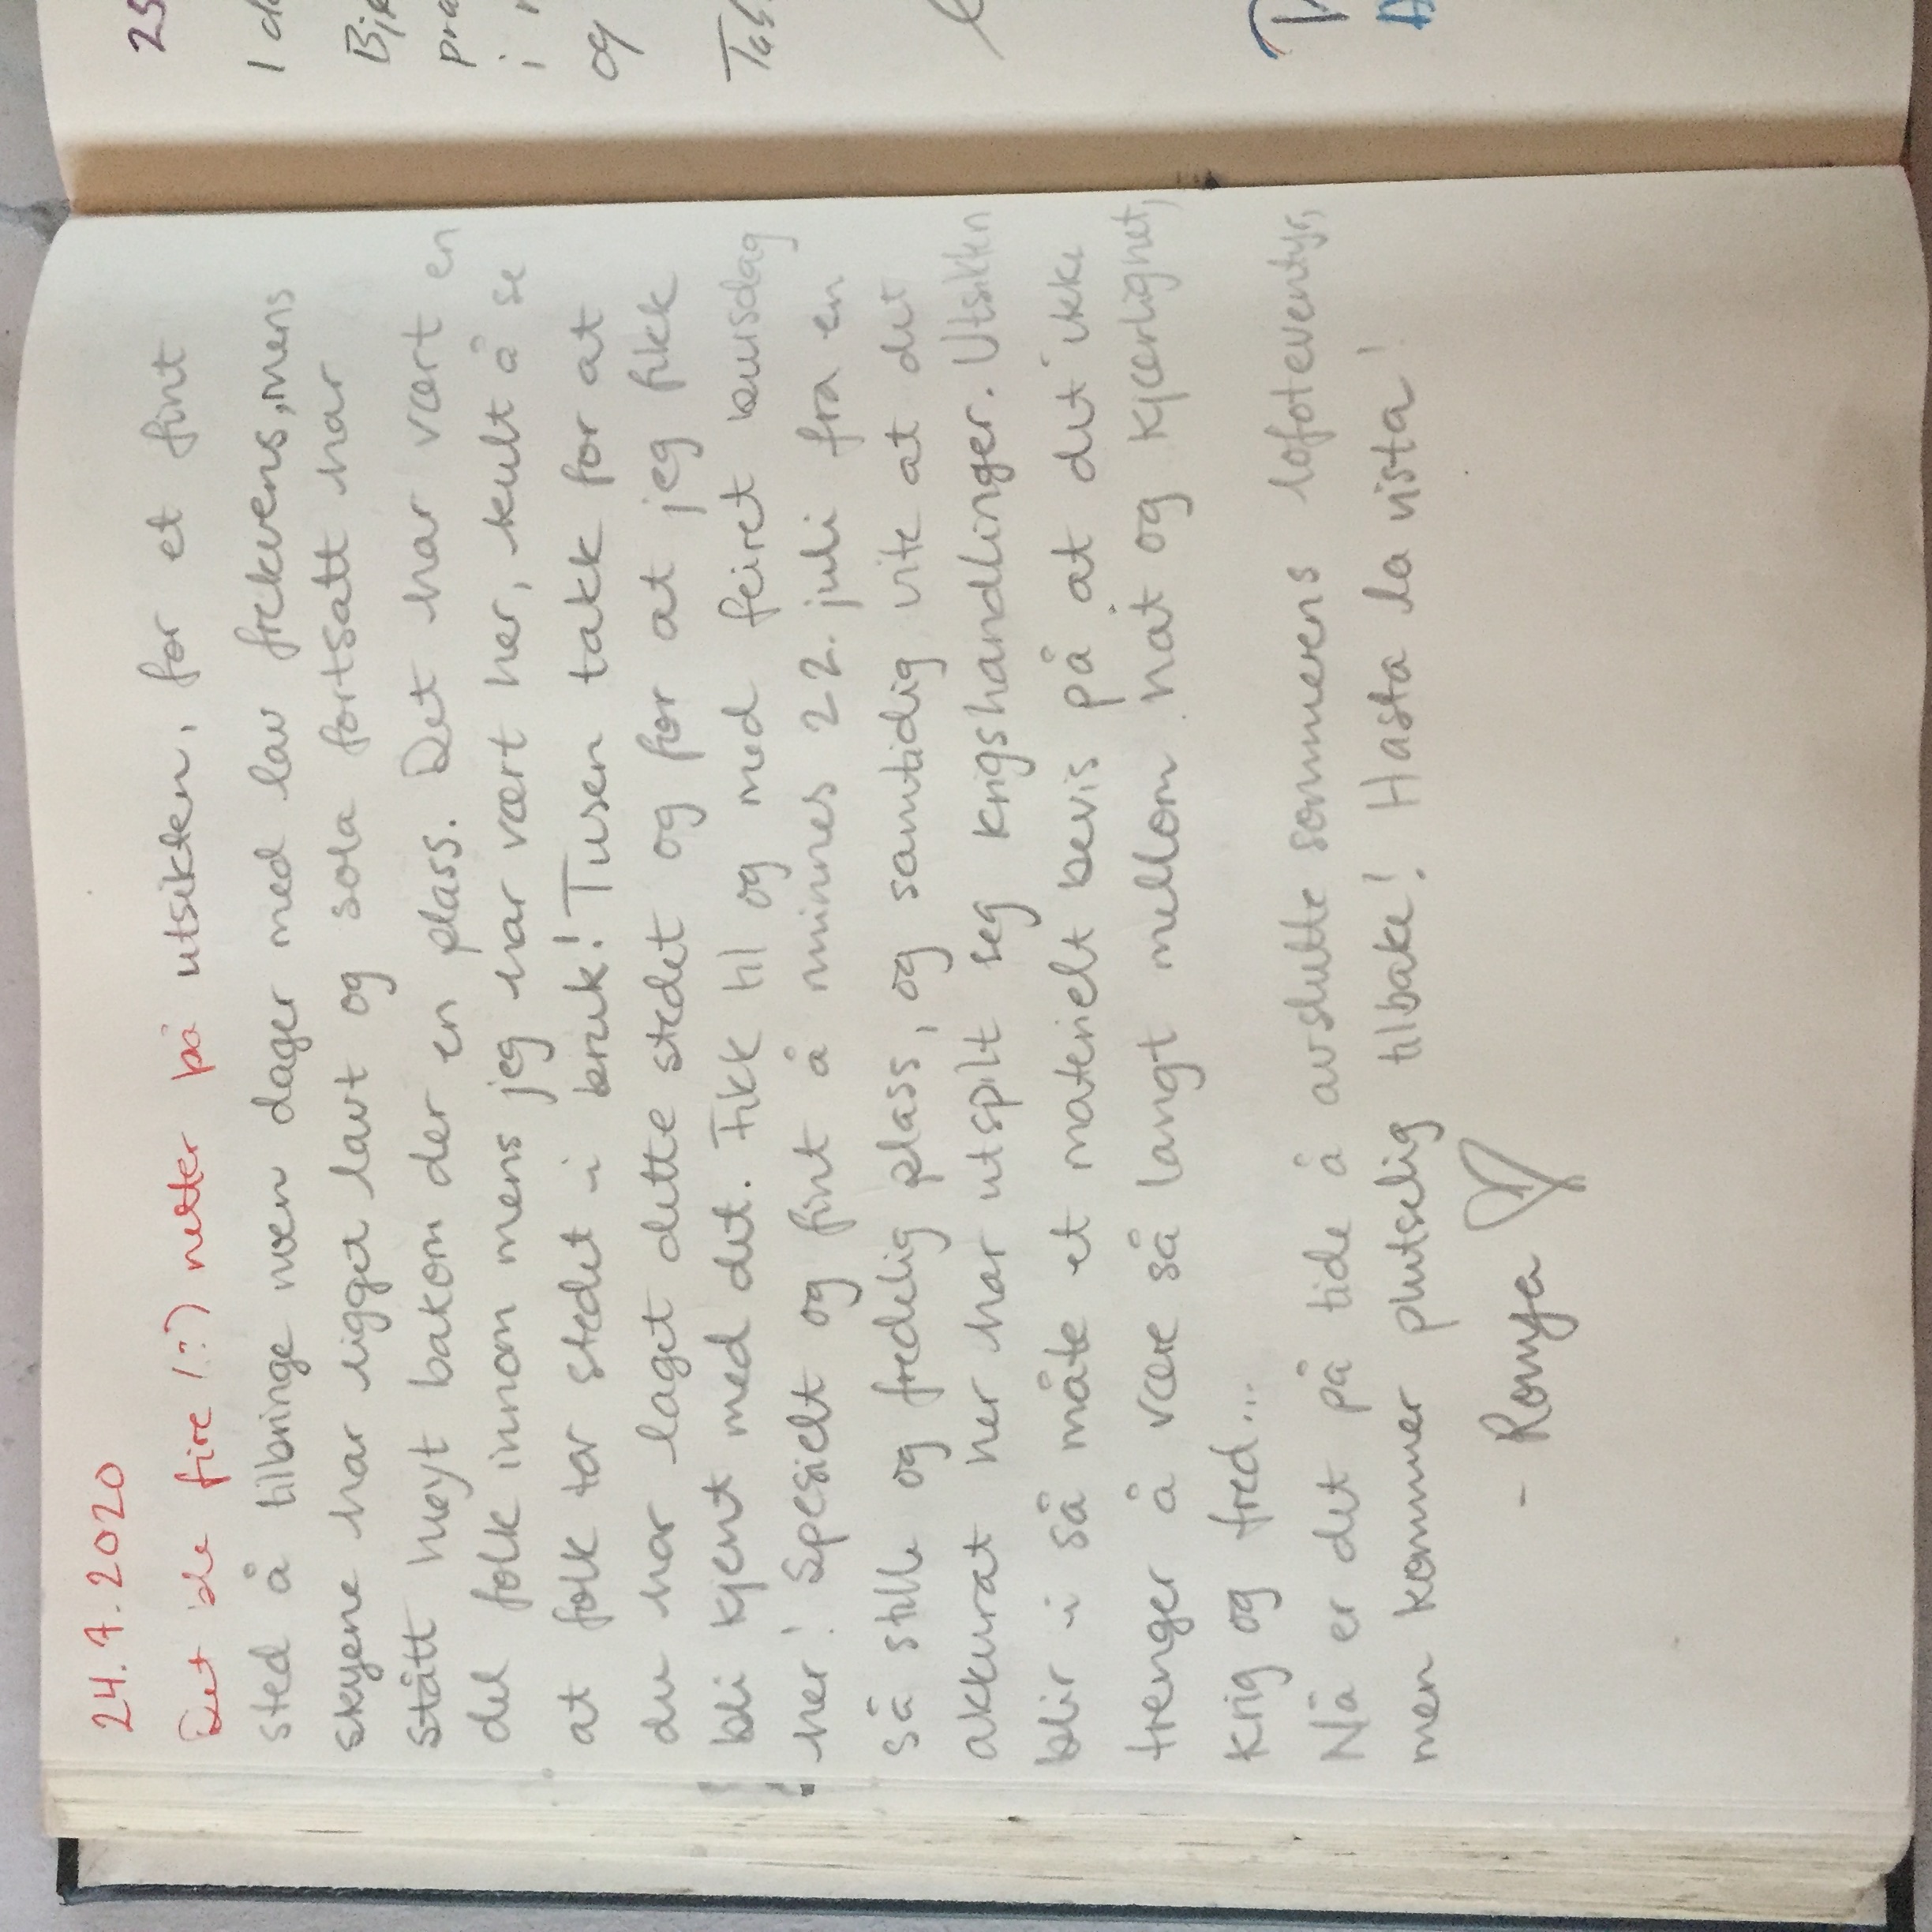 24.7.2020
Det ble fire (!?) netter på utsikten, for et fint
sted å tilbringe noen dager med lav frekvens, mens
skyene har ligget lavt og sola fortsatt har
stått høyt bakom der en plass. Det har vært en
del folk innom mens jeg har vært her, kult å se
at folk tar stedet i bruk! Tusen takk for at
du har laget dette stedet og for at jeg fikk
bli kjent med det. Fikk til og med feiret bursdag
her! Spesielt og fint å minnes 22. juli fra en
så stille og fredelig plass, og samtidig vite at det
akkurat her har utspilt seg krigshandlinger. Utsikten
blir i så måte et materielt bevis på at det ikke
trenger å være så langt mellom hat og kjærlighet,
krig og fred...
Nå er det på tide å avslutte sommerens lofoteventyr,
men kommer plutselig tilbake! Hasta la vista!
- Ronja
25
I d
og